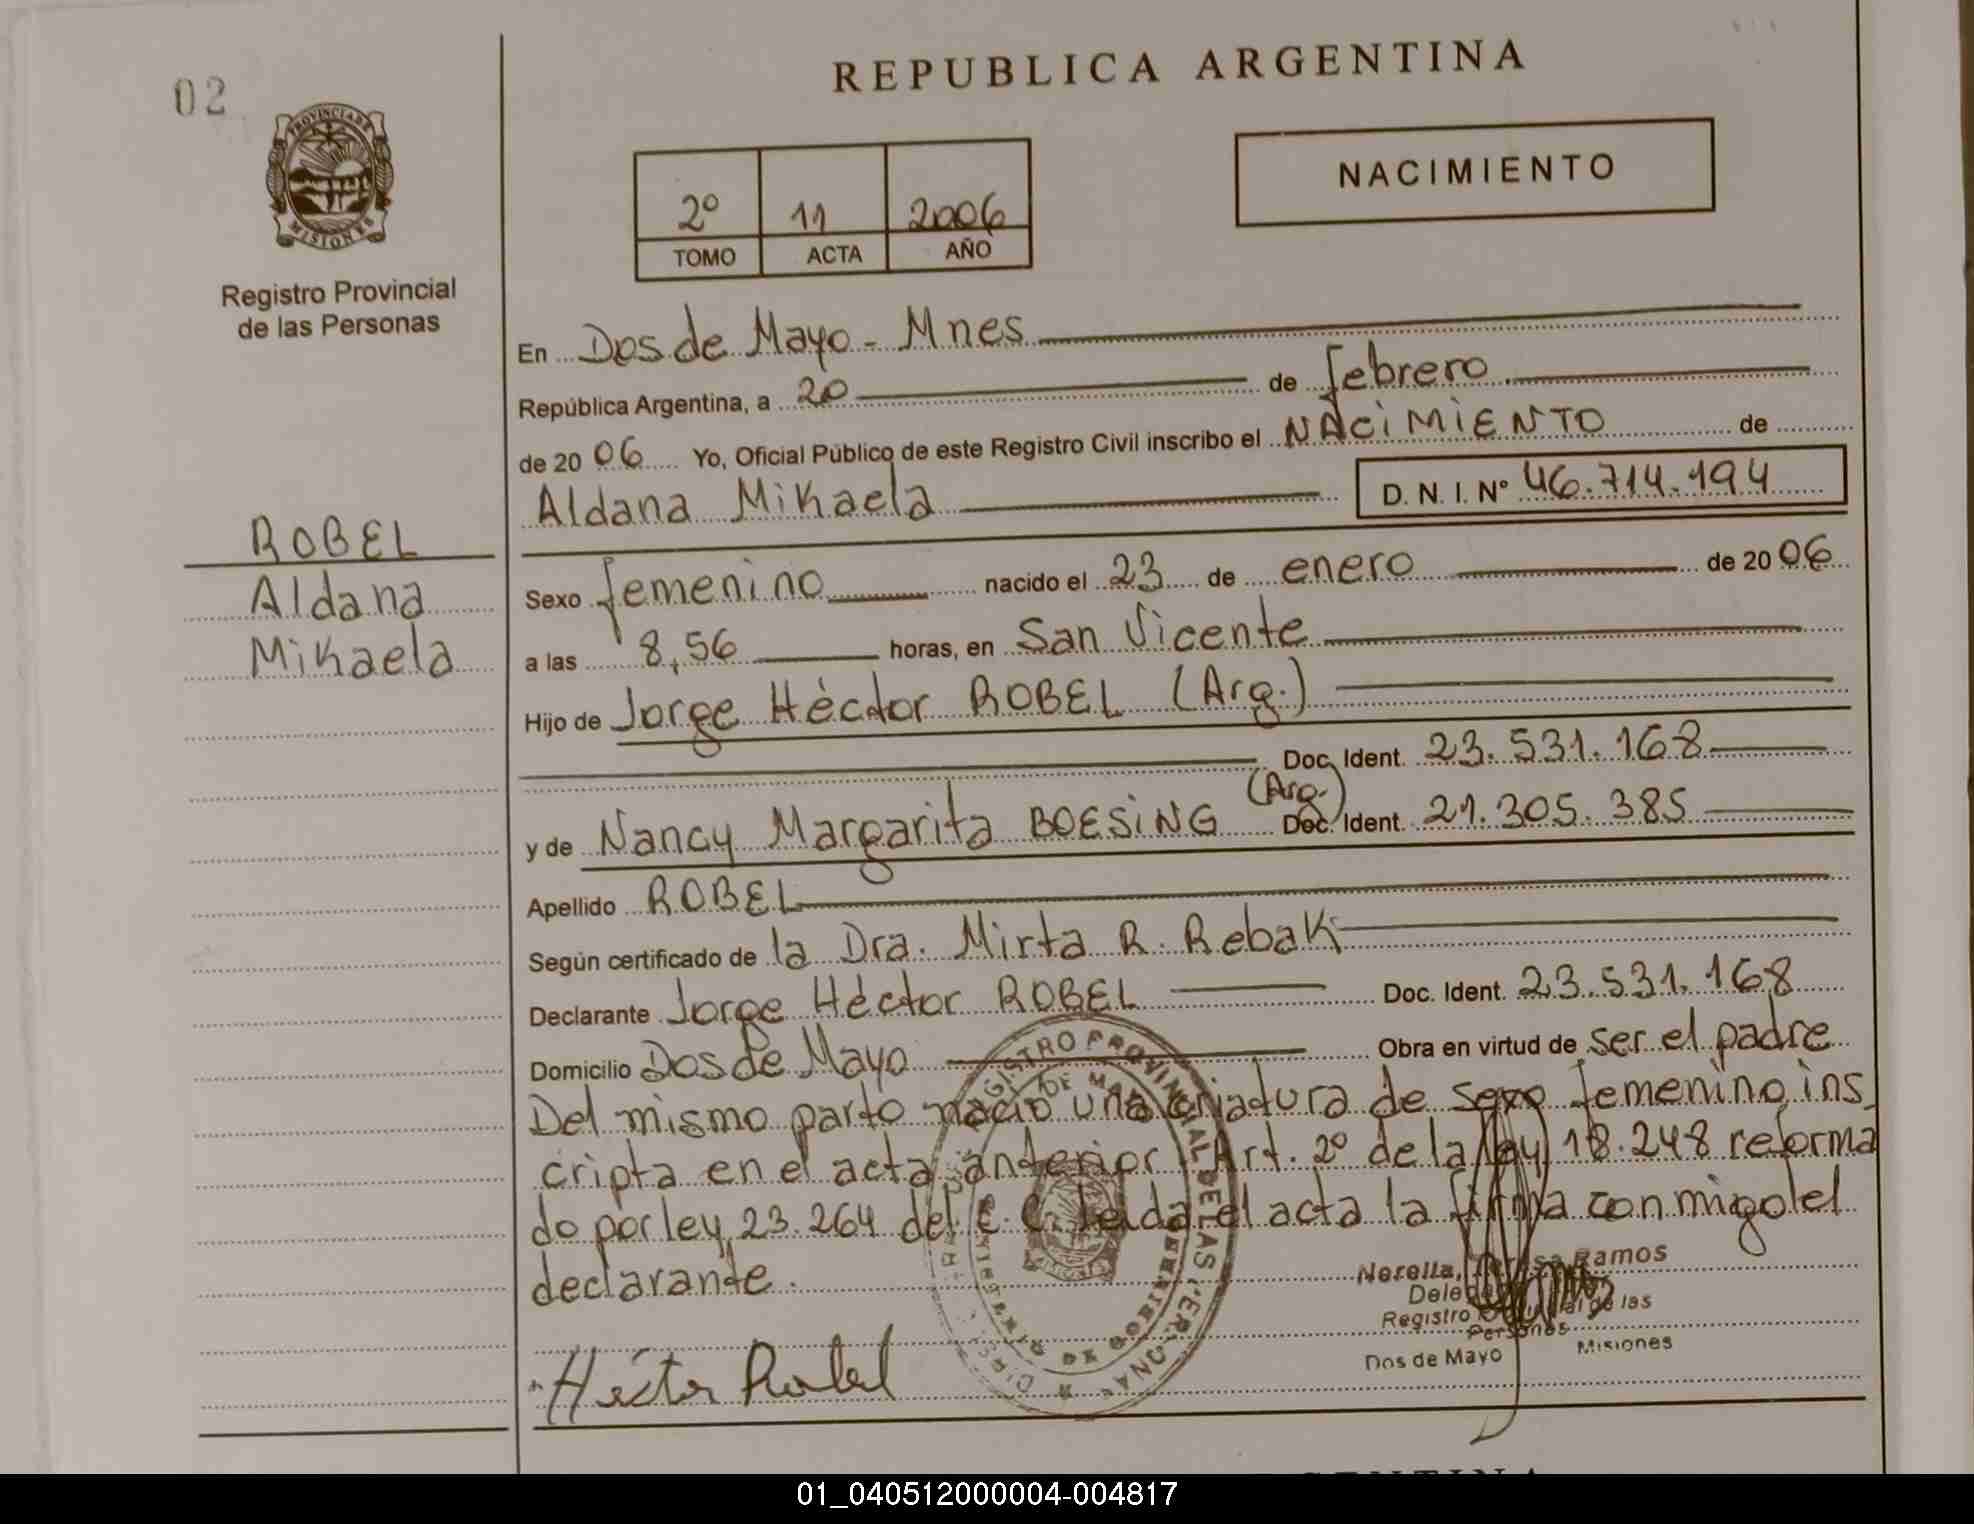 02
PROVINCIA DE
MISIONES
Registro Provincial
de las Personas
ROBEL
Aldana
Mikaela
REPUBLICA ARGENTINA
2º 11 2006
TOMO ACTA AÑO
NACIMIENTO
En Dos de Mayo - Mnes
República Argentina, a 20 de febrero
de 2006 Yo, Oficial Público de este Registro Civil inscribo el NACIMIENTO de
Aldana Mikaela D. N. I. Nº 46.714.194
Sexo femenino nacido el 23 de enero de 2006
a las 8,56 horas, en San Vicente
Hijo de Jorge Héctor ROBEL (Arg.)
Doc. Ident. 23.531.168
y de Nancy Margarita BOESING (Arg.) Doc. Ident. 21.305.385
Apellido ROBEL
Según certificado de la Dra. Mirta R. Rebak
Declarante Jorge Héctor ROBEL Doc. Ident. 23.531.168
Domicilio Dos de Mayo Obra en virtud de ser el padre
Del mismo parto nació una criadura de sexo femenino, ins
cripta en el acta anterior. Art. 2º de la ley 18.248 reforma
do por ley 23.264 del C. C. Leida el acta la firma conmigo el
declarante.
REGISTRO PROVINCIAL DE LAS PERSONAS
DE MAYO
Ramos
Registro de las
Personas
Dos de Mayo Misiones
Héctor Robel
01_040512000004-004817